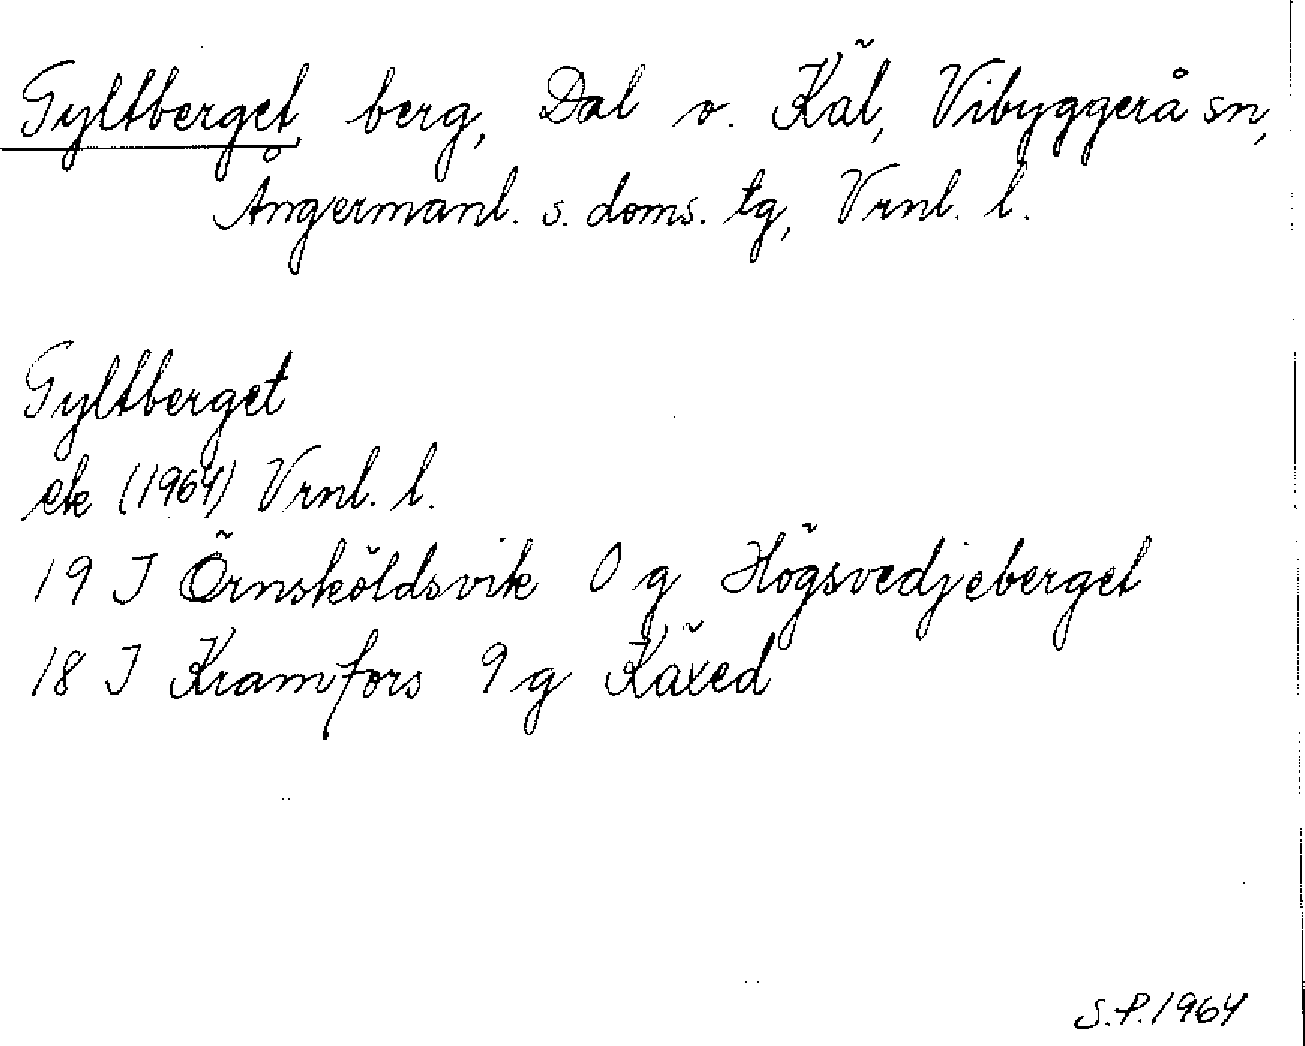 Gyltberget, berg, Dal o. Käl, Vibyggerå sn,
Ångermanl. s. doms. tg, Vrnl. l.
Gyltberget
ek (1964) Vrnl. l.
19 J Örnsköldsvik 0 g Högsvedjeberget
18 J Kramfors 9 g Käxed
S.P. 1964